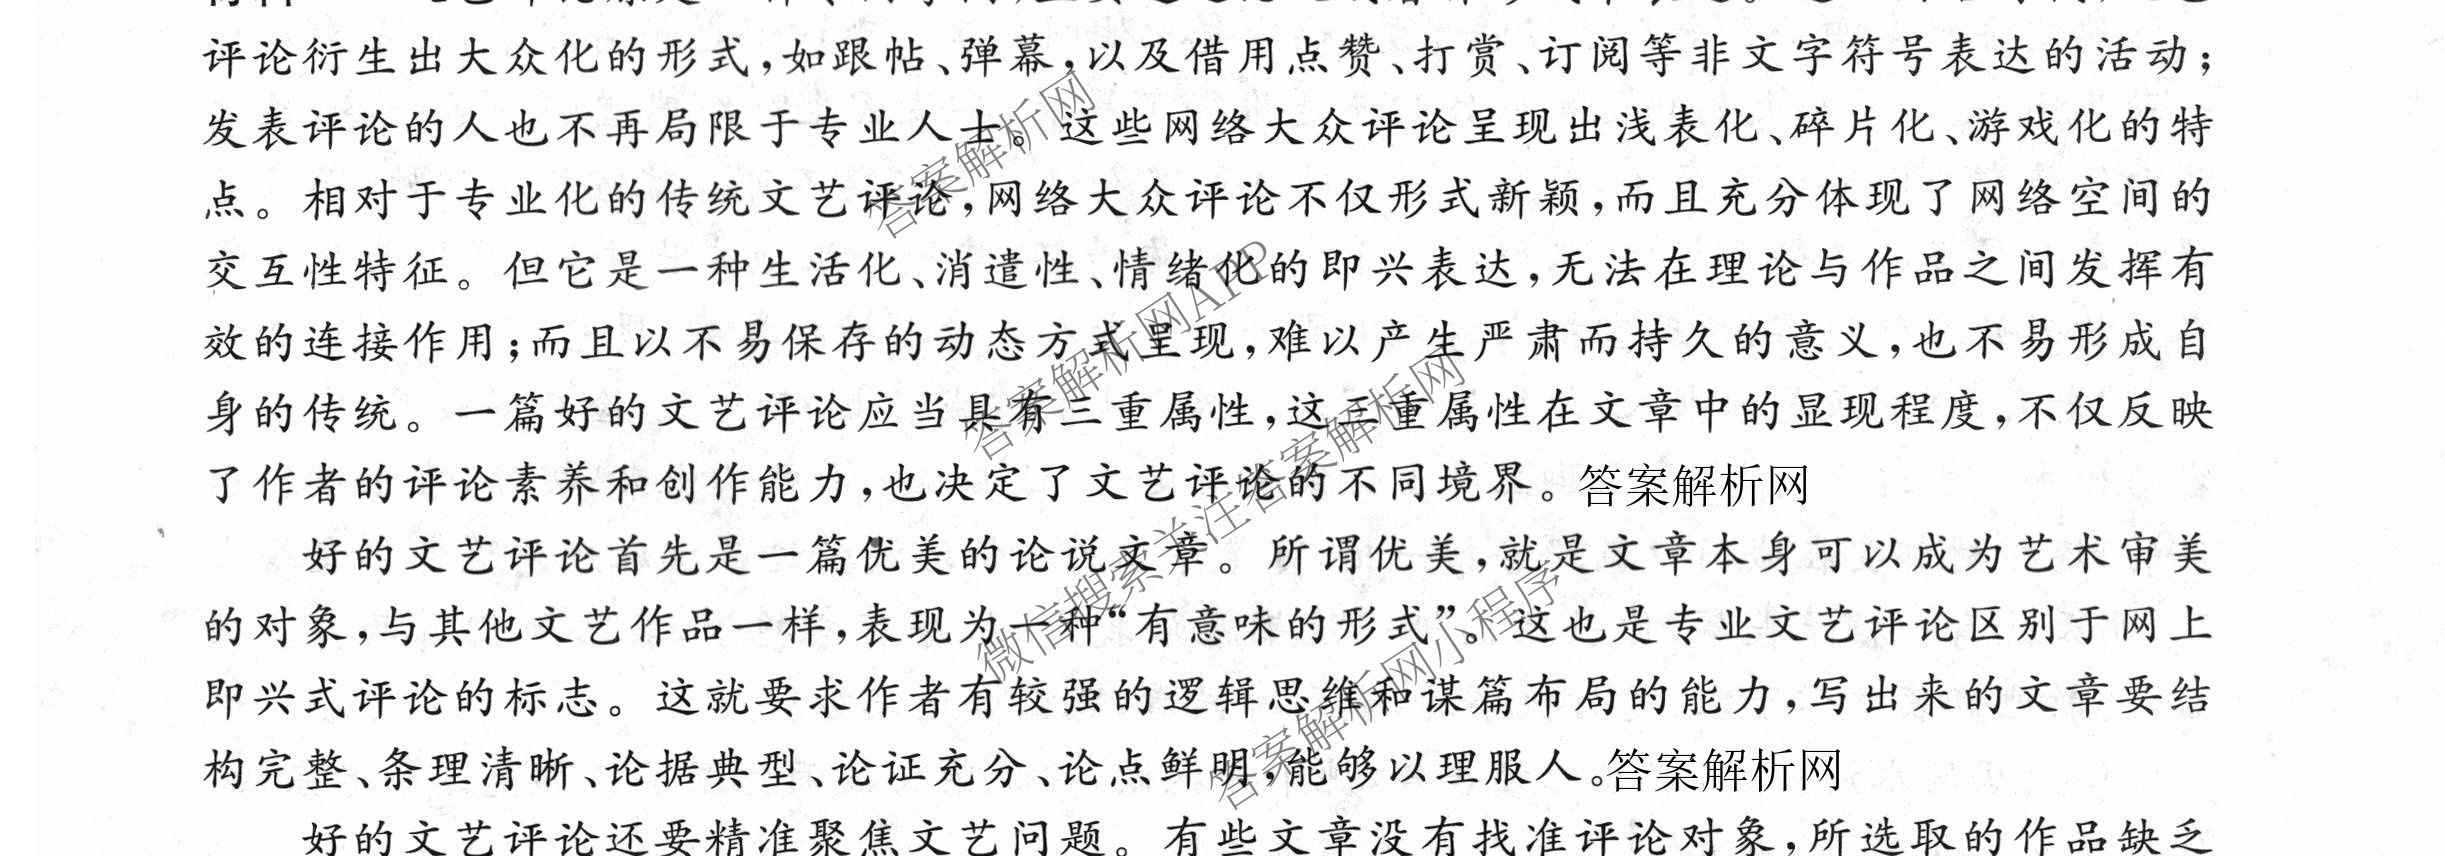 评论衍生出大众化的形式,如跟帖、弹幕,以及借用点赞、打赏、订阅等非文字符号表达的活动;
发表评论的人也不再局限于专业人士。这些网络大众评论呈现出浅表化、碎片化、游戏化的特
点。相对于专业化的传统文艺评论,网络大众评论不仅形式新颖,而且充分体现了网络空间的
交互性特征。但它是一种生活化、消遣性、情绪化的即兴表达,无法在理论与作品之间发挥有
效的连接作用;而且以不易保存的动态方式呈现,难以产生严肃而持久的意义,也不易形成自
身的传统。一篇好的文艺评论应当具有三重属性,这三重属性在文章中的显现程度,不仅反映
了作者的评论素养和创作能力,也决定了文艺评论的不同境界。答案解析网
好的文艺评论首先是一篇优美的论说文章。所谓优美,就是文章本身可以成为艺术审美
的对象,与其他文艺作品一样,表现为一种“有意味的形式”。这也是专业文艺评论区别于网上
即兴式评论的标志。这就要求作者有较强的逻辑思维和谋篇布局的能力,写出来的文章要结
构完整、条理清晰、论据典型、论证充分、论点鲜明,能够以理服人。答案解析网
好的文艺评论还要精准聚焦文艺问题。有些文章没有找准评论对象,所选取的作品缺乏
答案解析网
答案解析网APP
微信搜索关注答案解析网
答案解析网小程序